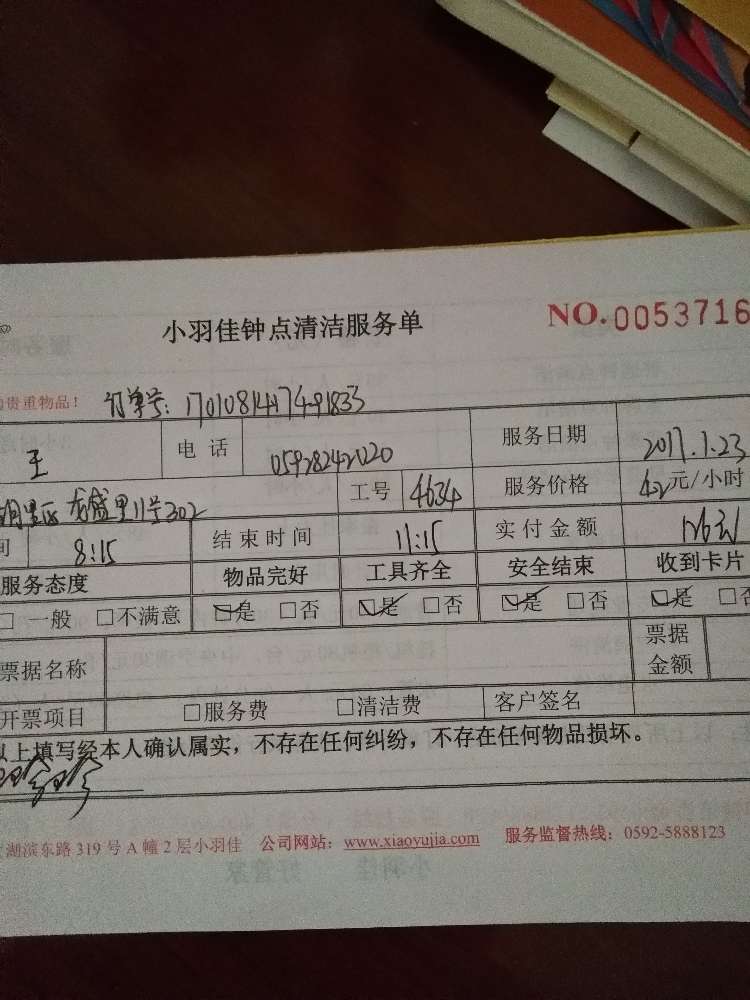 小羽佳钟点清洁服务单 NO.0053716
贵重物品! 订单号:
王 电话 服务日期 2017.1.23
龙盛里11号302 工号 4634 服务价格 42元/小时
间 8:15 结束时间 11:15 实付金额 126元
服务态度 物品完好 工具齐全 安全结束 收到卡片
□一般 □不满意 ☑是 □否 ☑是 □否 ☑是 □否 ☑是 □否
票据名称 票据金额
开票项目 □服务费 □清洁费 客户签名
以上填写经本人确认属实，不存在任何纠纷，不存在任何物品损坏。
湖滨东路319号A幢2层小羽佳 公司网站：www.xiaoyujia.com 服务监督热线：0592-5888123